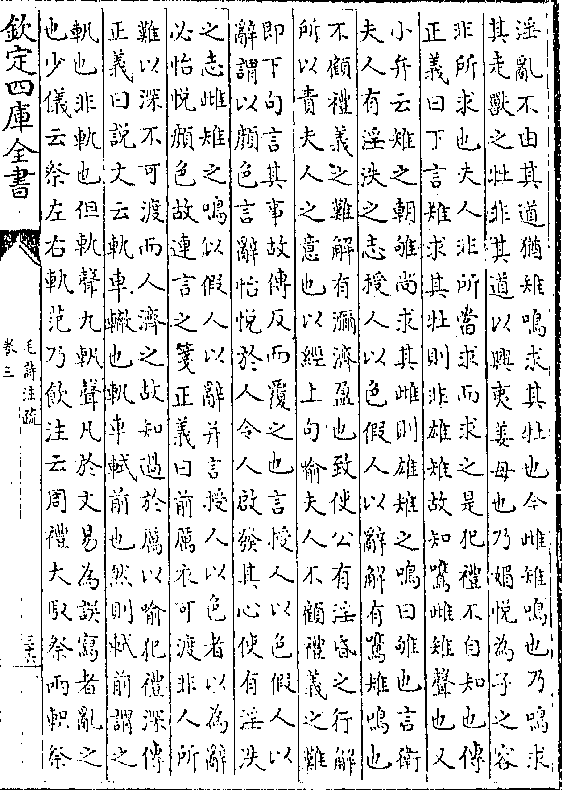 淫亂不由其道猶雉鳴求其牡也今雌雉鳴也乃鳴求
其走獸之牡非其道以興夷姜母也乃媚悅為子之容
非所求也夫人非所當求而求之是犯禮不自知也傳
正義曰下言雉求其牡則非雄雉故知鷕雌雉聲也又
小弁云雉之朝雊尚求其雌則雄雉之鳴曰雊也言衛
夫人有淫泆之志授人以色假人以辭解有鷕雉鳴也
不顧禮義之難解有瀰濟盈也致使公有淫昏之行解
所以責夫人之意也以經上句喻夫人不顧禮義之難
即下句言其事故傳反而覆之也言授人以色假人以
辭謂以顔色言辭怡悅於人令人啟發其心使有淫泆
之志雌雉之鳴似假人以辭并言授人以色者以為辭
必怡悅顔色故連言之箋正義曰前厲衣可渡非人所
難以深不可渡而人濟之故知過於厲以喻犯禮深傳
正義曰說文云軌車轍也軓車軾前也然則軾前謂之
軓也非軌也但軌聲九軓聲凡於文易為誤寫者亂之
也少儀云祭左右軌范乃飲注云周禮大馭祭兩軹祭
欽定四庫全書
毛詩注疏
卷三
三十六